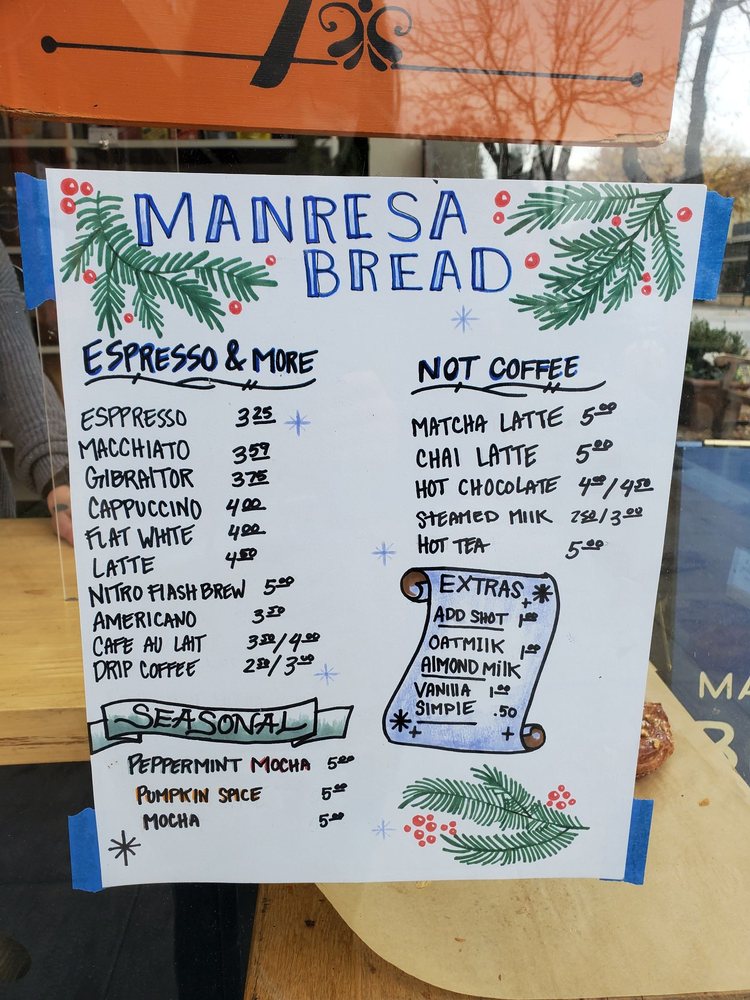 MANRESA
BREAD
ESPRESSO & MORE
ESPPRESSO 3 25
MACCHIATO 3 59
GIBRAITOR 3 75
CAPPUCCINO 4 00
FLAT WHITE 4 00
LATTE 4 50
NITRO FLASH BREW 5 00
AMERICANO 3 50
CAFE AU LAIT 3 50/4 00
DRIP COFFEE 2 50/3 00
SEASONAL
PEPPERMINT MOCHA 5 00
PUMPKIN SPICE 5 00
MOCHA 5 00
NOT COFFEE
MATCHA LATTE 5 00
CHAI LATTE 5 00
HOT CHOCOLATE 4 00/4 50
STEAMED MILK 2 50/3 00
HOT TEA 5 00
EXTRAS
ADD SHOT 1 00
OATMILK
ALMOND MILK 1 00
VANILLA 1 00
SIMPLE .50
MA
B